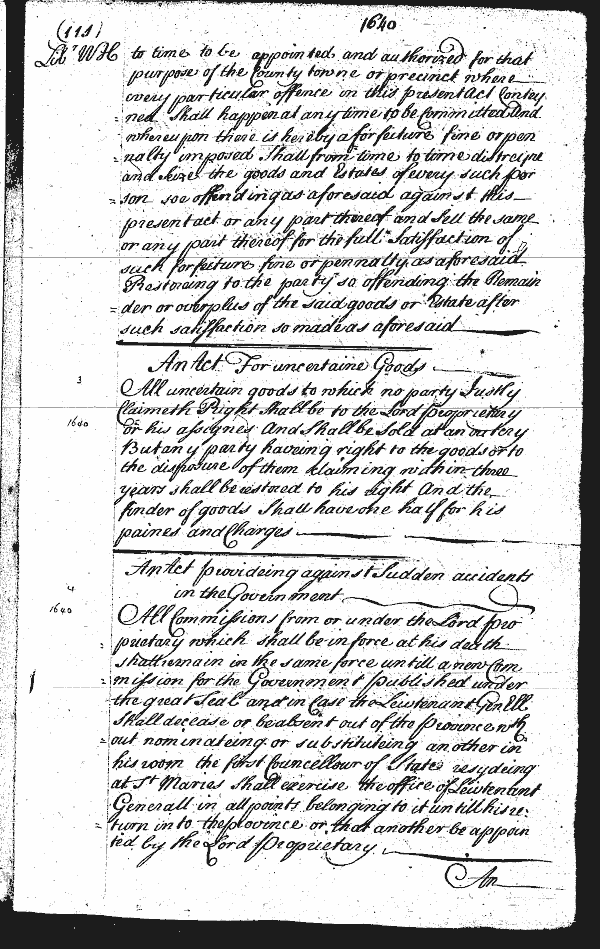 (111)
1640
Lib.r WH to time to be appointed and authorized for that
purpose of the County towne or precinct where
every particular offence in this present Act Contey
ned Shall happen at any time to be Committed And
whereupon there is hereby a forfeiture fine or pen
nalty imposed Shall from time to time distreine
and Seize the goods and Estates of every such per
son soe offending as aforesaid against this
present act or any part thereof and Sell the same
or any part thereof for the full Satisfaction of
such forfeiture fine or pennalty as aforesaid
Restoreing to the party so offending the Remain
der or overplus of the said goods or Estate after
such satisfaction so made as aforesaid
An Act For uncertaine Goods
3
All uncertain goods to which no party Justly
1640
Claimeth Right Shall be to the Lord Proprietary
or his assignes And Shall be Sold at an outcry
But any party haveing right to the goods or to
the disposure of them claiming within three
years shall be restored to his right And the
finder of goods Shall have one half for his
paines and Charges
An Act provideing against Sudden accidents
4
in the Government
1640
All Commissions from or under the Lord Pro
prietary which shall be in force at his death
shall remain in the same force untill a new Com
mission for the Government published under
the great Seal and in Case the Lieutenant Gen.ll
shall decease or be absent out of the Province wth
out nominateing or substituteing another in
his room the first Councellour of State resyding
at St Maries Shall exercise the office of Lieutenant
Generall in all points belonging to it untill his re:
turn in to the province or that another be appoin
ted by the Lord Proprietary
An